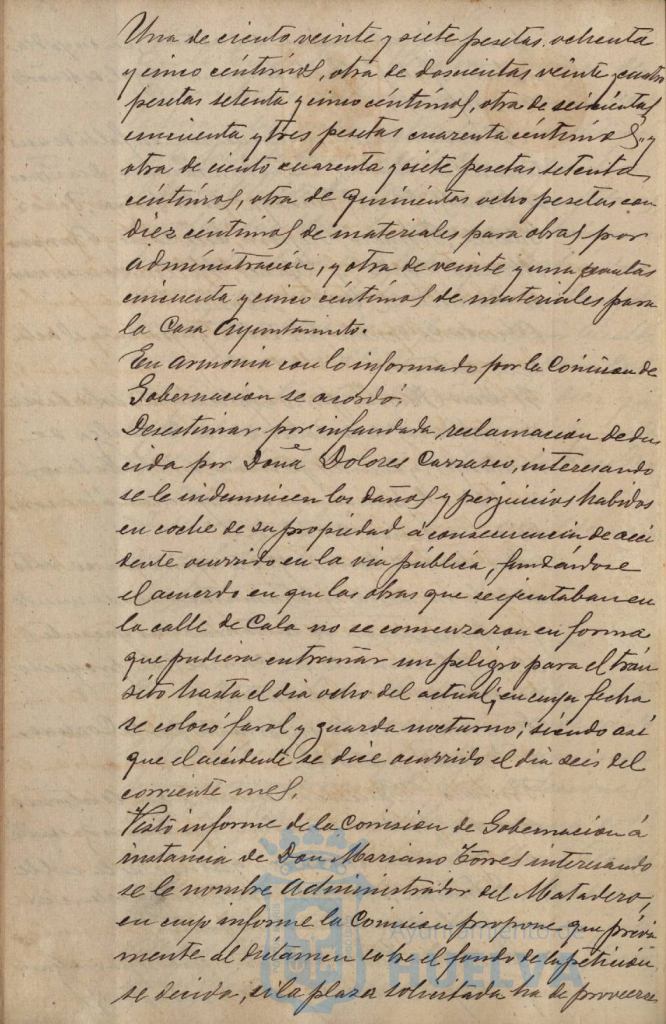 Una de ciento veinte y siete pesetas ochenta
y cinco céntimos, otra de doscientas veinte y cuatro
pesetas setenta y cinco céntimos, otra de seiscientas
cincuenta y tres pesetas cuarenta céntimos, y
otra de ciento cuarenta y siete pesetas setenta
céntimos, otra de quinientas ocho pesetas con
diez céntimos de materiales para obras por
administración, y otra de veinte y una pesetas
cincuenta y cinco céntimos de materiales para
la Casa Ayuntamiento.
En armonia con lo informado por la Comision de
Gobernacion se acordó:
Desestimar por infundada reclamación dedu
cida por Doña Dolores Carrasco, interesando
se le indemnicen los daños y perjuicios habidos
en coche de su propiedad á consecuencia de acci
dente ocurrido en la via pública, fundándose
el acuerdo en que las obras que se ejecutaban en
la calle de Cala no se comenzaron en forma
que pudiera entrañar un peligro para el trán
sito hasta el dia ocho del actual, en cuya fecha
se colocó farol y guarda nocturno; siendo así
que el accidente se dice ocurrido el dia seis del
corriente mes.
Visto informe de la Comision de Gobernacion á
instancia de Don Mariano Torres interesando
se le nombre Administrador del Matadero,
en cuyo informe la Comision propone que previa
mente al dictamen sobre el fondo de la peticion
se decida, si la plaza solicitada ha de proveerse
Ayuntamiento de
HUELVA